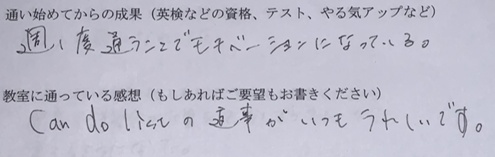 通い始めてからの成果（英検などの資格、テスト、やる気アップなど）
週1度通うことでモチベーションになっている。
教室に通っている感想（もしあればご要望もお書きください）
Can do listの返事がいつもうれしいです。